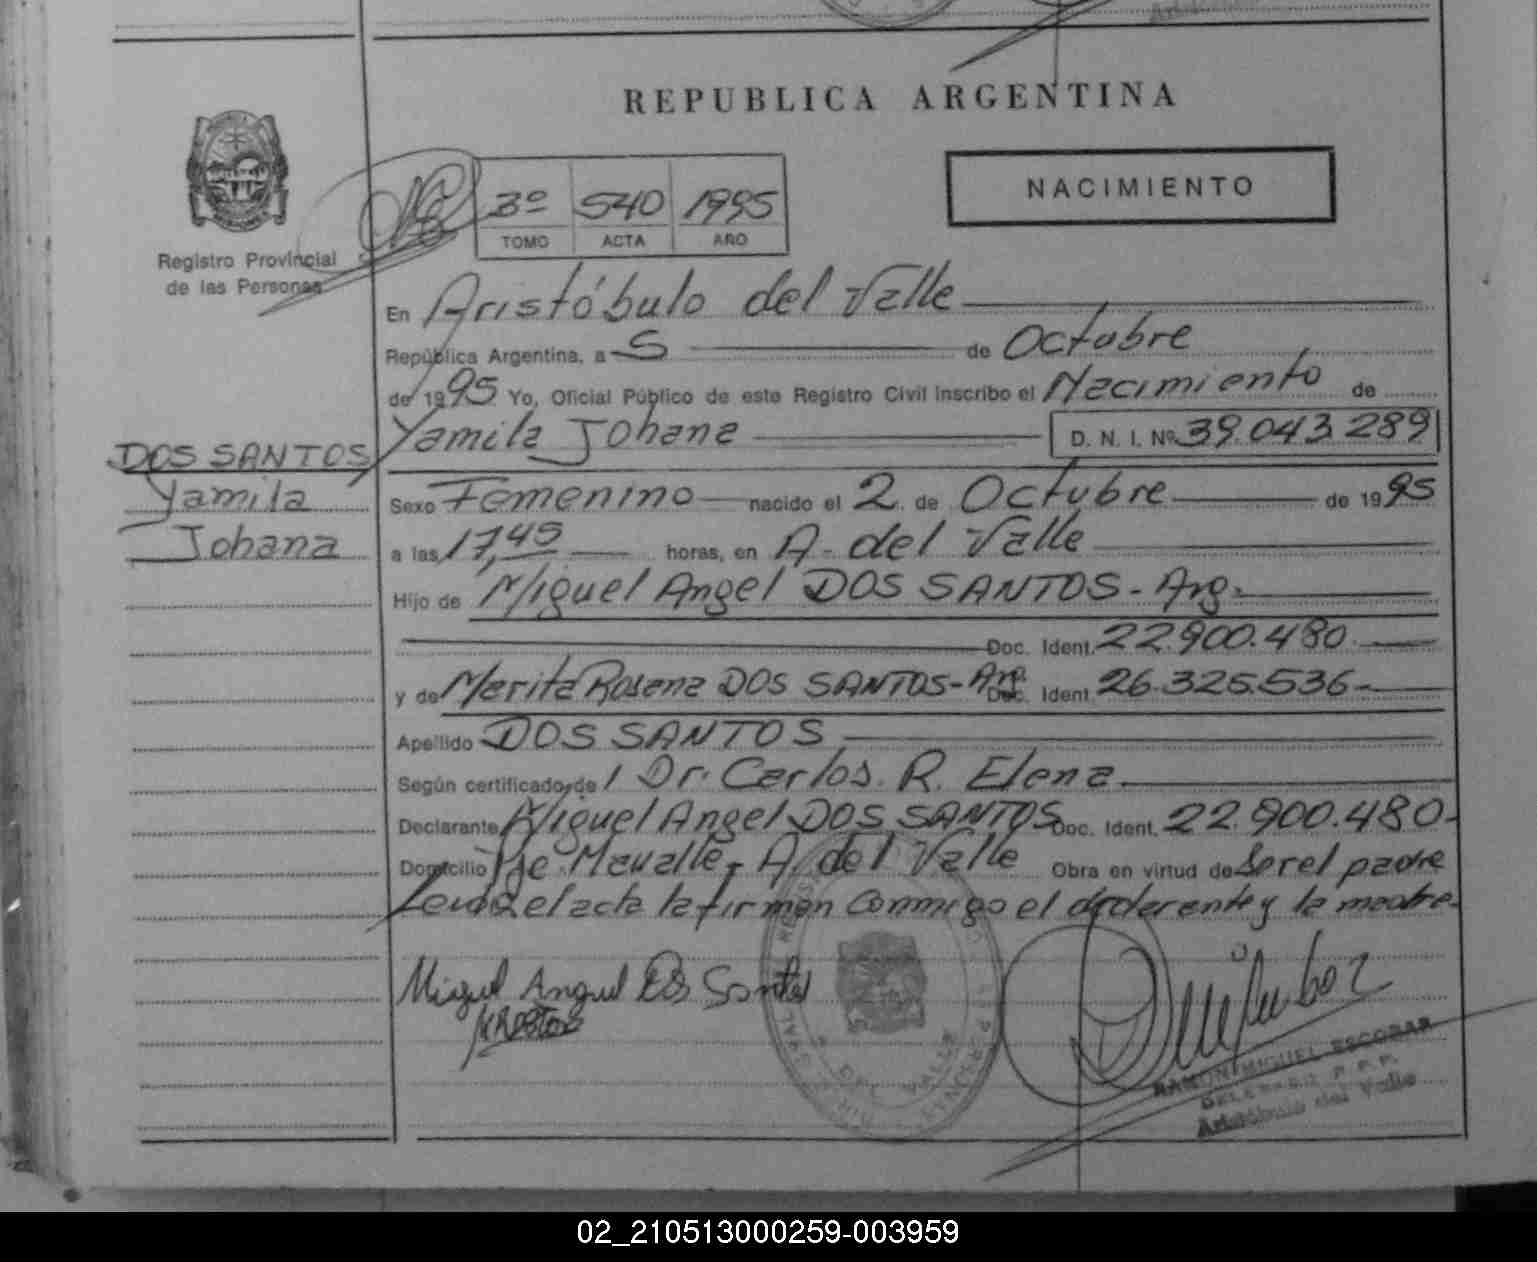 REPUBLICA ARGENTINA
NACIMIENTO
3º 540 1995
TOMO ACTA AÑO
Registro Provincial
de las Personas
En Aristóbulo del Valle
República Argentina, a 5 de Octubre
de 1995 Yo, Oficial Público de este Registro Civil inscribo el Nacimiento de
Yamila Johana D. N. I. Nº 39.043.289
DOS SANTOS
Yamila
Johana
Sexo Femenino nacido el 2 de Octubre de 1995
a las 17,45 horas, en A. del Valle
Hijo de Miguel Angel DOS SANTOS - Arg.
Doc. Ident. 22.900.480
y de Marita Rosana DOS SANTOS - Arg. Doc. Ident. 26.325.536
Apellido DOS SANTOS
Según certificado de Dr. Carlos R. Elena
Declarante Miguel Angel DOS SANTOS Doc. Ident. 22.900.480
Domicilio A. del Valle Obra en virtud de Ser el padre
el acta la firman conmigo el y la madre
Miguel Dos Santos
RAMON MIGUEL ESCOBAR
Aristóbulo del Valle
02_210513000259-003959